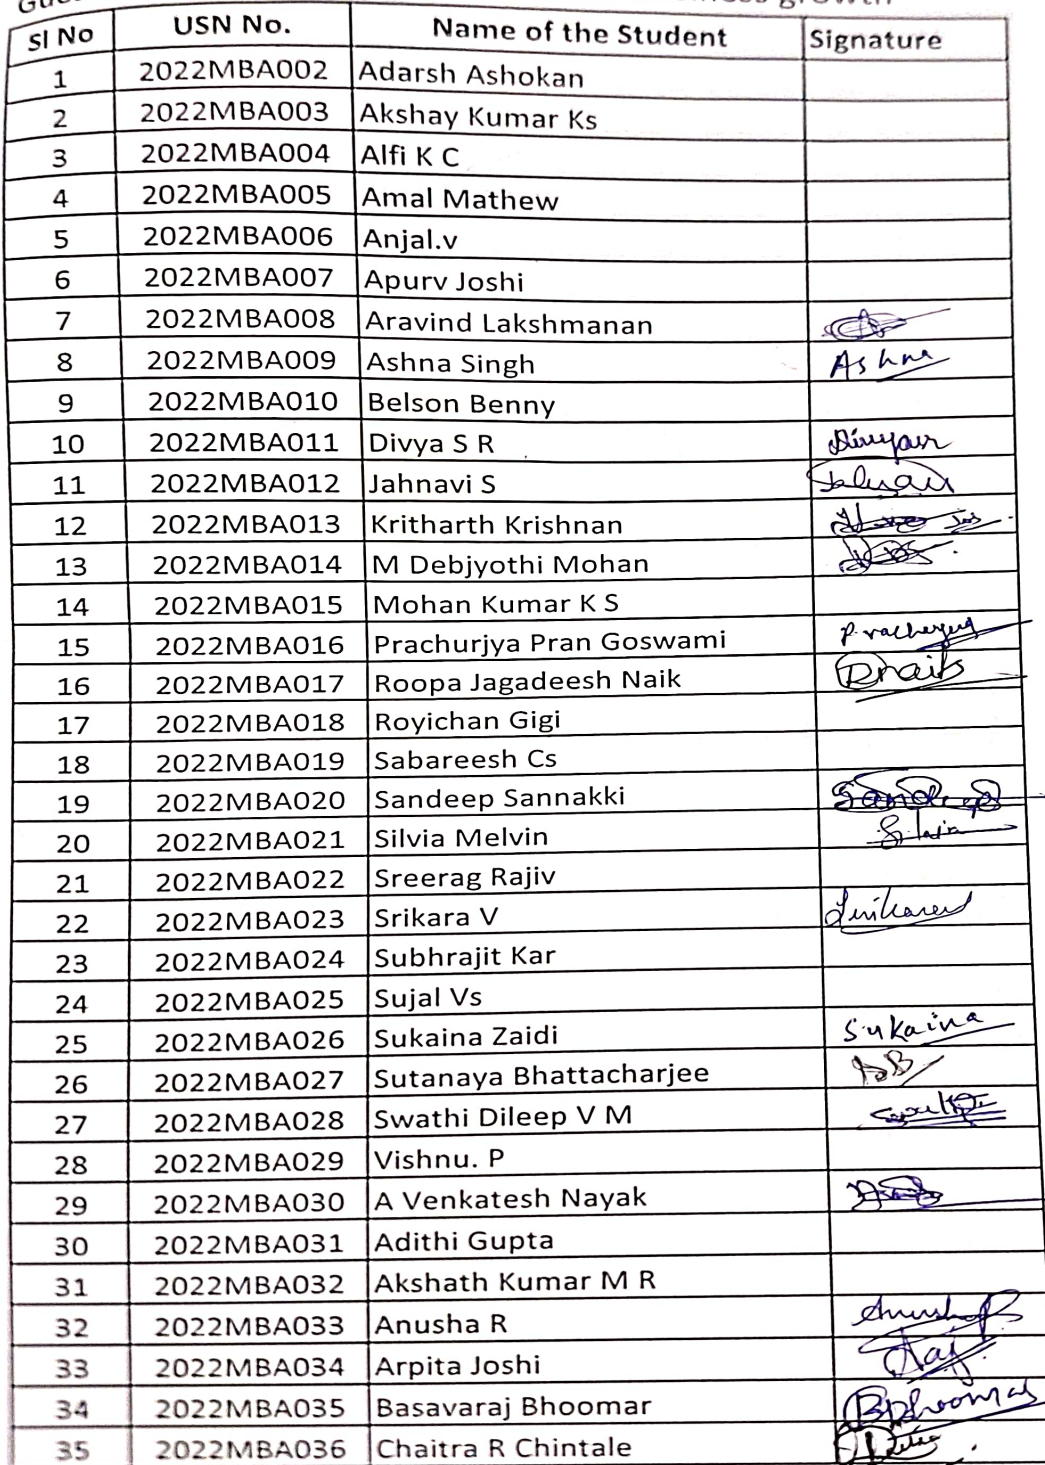 growth
Sl No USN No. Name of the Student Signature
1 2022MBA002 Adarsh Ashokan
2 2022MBA003 Akshay Kumar Ks
3 2022MBA004 Alfi K C
4 2022MBA005 Amal Mathew
5 2022MBA006 Anjal.v
6 2022MBA007 Apurv Joshi
7 2022MBA008 Aravind Lakshmanan
8 2022MBA009 Ashna Singh Ashna
9 2022MBA010 Belson Benny
10 2022MBA011 Divya S R
11 2022MBA012 Jahnavi S
12 2022MBA013 Kritharth Krishnan
13 2022MBA014 M Debjyothi Mohan
14 2022MBA015 Mohan Kumar K S
15 2022MBA016 Prachurjya Pran Goswami
16 2022MBA017 Roopa Jagadeesh Naik Rnaik
17 2022MBA018 Royichan Gigi
18 2022MBA019 Sabareesh Cs
19 2022MBA020 Sandeep Sannakki Sandeep
20 2022MBA021 Silvia Melvin
21 2022MBA022 Sreerag Rajiv
22 2022MBA023 Srikara V
23 2022MBA024 Subhrajit Kar
24 2022MBA025 Sujal Vs
25 2022MBA026 Sukaina Zaidi Sukaina
26 2022MBA027 Sutanaya Bhattacharjee
27 2022MBA028 Swathi Dileep V M
28 2022MBA029 Vishnu. P
29 2022MBA030 A Venkatesh Nayak
30 2022MBA031 Adithi Gupta
31 2022MBA032 Akshath Kumar M R
32 2022MBA033 Anusha R
33 2022MBA034 Arpita Joshi
34 2022MBA035 Basavaraj Bhoomar
35 2022MBA036 Chaitra R Chintale